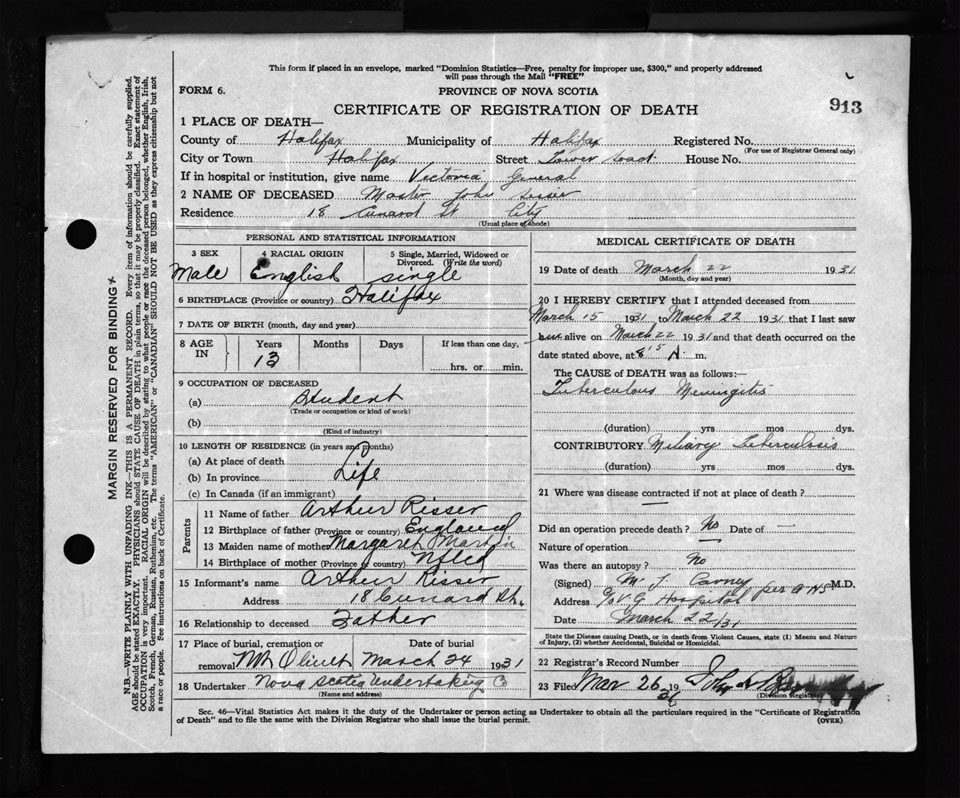 This form if placed in an envelope, marked "Dominion Statistics—Free, penalty for improper use, $300," and properly addressed
will pass through the Mail "FREE"
FORM 6.
PROVINCE OF NOVA SCOTIA
913
CERTIFICATE OF REGISTRATION OF DEATH
1 PLACE OF DEATH—
County of Halifax Municipality of Halifax Registered No.
(For use of Registrar General only)
City or Town Halifax Street Tower Road House No.
If in hospital or institution, give name Victoria General
2 NAME OF DECEASED Master John
Residence 18 Cunard St City
(Usual place of abode)
MARGIN RESERVED FOR BINDING
N.B.—WRITE PLAINLY WITH UNFADING INK—THIS IS A PERMANENT RECORD. Every item of information should be carefully supplied.
AGE should be stated EXACTLY. PHYSICIANS should STATE CAUSE OF DEATH in plain terms, so that it may be properly classified. Exact statement of
OCCUPATION is very important. RACIAL ORIGIN will be described by stating to what people or race the deceased person belonged, whether English, Irish,
Scotch, French, German, Russian, Ruthenian, etc. The terms "AMERICAN" or "CANADIAN" SHOULD NOT BE USED as they express citizenship but not
a race or people. See instructions on back of Certificate.
PERSONAL AND STATISTICAL INFORMATION
3 SEX
Male
4 RACIAL ORIGIN
English
5 Single, Married, Widowed or
Divorced. (Write the word)
single
6 BIRTHPLACE (Province or country) Halifax
7 DATE OF BIRTH (month, day and year)
8 AGE IN Years Months Days If less than one day,
13
hrs. or min.
9 OCCUPATION OF DECEASED
(a) Student
(Trade or occupation or kind of work)
(b)
(Kind of industry)
10 LENGTH OF RESIDENCE (in years and months)
(a) At place of death
(b) In province Life
(c) In Canada (if an immigrant)
Parents
11 Name of father Arthur Risser
12 Birthplace of father (Province or country) England
13 Maiden name of mother Margaret Martin
14 Birthplace of mother (Province or country) Nfld
15 Informant's name Arthur Risser
Address 18 Cunard St.
16 Relationship to deceased Father
17 Place of burial, cremation or Date of burial
removal Mt Olivet March 24 1931
18 Undertaker Nova Scotia Undertaking Co
(Name and address)
MEDICAL CERTIFICATE OF DEATH
19 Date of death March 22 1931
(Month, day and year)
20 I HEREBY CERTIFY that I attended deceased from
March 15 1931 to March 22 1931 that I last saw
him alive on March 22 1931 and that death occurred on the
date stated above, at 8 15 A. m.
The CAUSE of DEATH was as follows:
Tuberculous Meningitis
(duration) yrs mos dys.
CONTRIBUTORY Miliary Tuberculosis
(duration) yrs mos dys.
21 Where was disease contracted if not at place of death?
Did an operation precede death? No Date of —
Nature of operation
Was there an autopsy? No
(Signed) M. J. Carney per M.D.
Address c/o V G Hospital
Date March 22/31
State the Disease causing Death, or in death from Violent Causes, state (1) Means and Nature
of Injury, (2) whether Accidental, Suicidal or Homicidal.
22 Registrar's Record Number
23 Filed Mar 26 19 John
(Division Registrar)
Sec. 46—Vital Statistics Act makes it the duty of the Undertaker or person acting as Undertaker to obtain all the particulars required in the "Certificate of Registration
of Death" and to file the same with the Division Registrar who shall issue the burial permit.
(OVER)